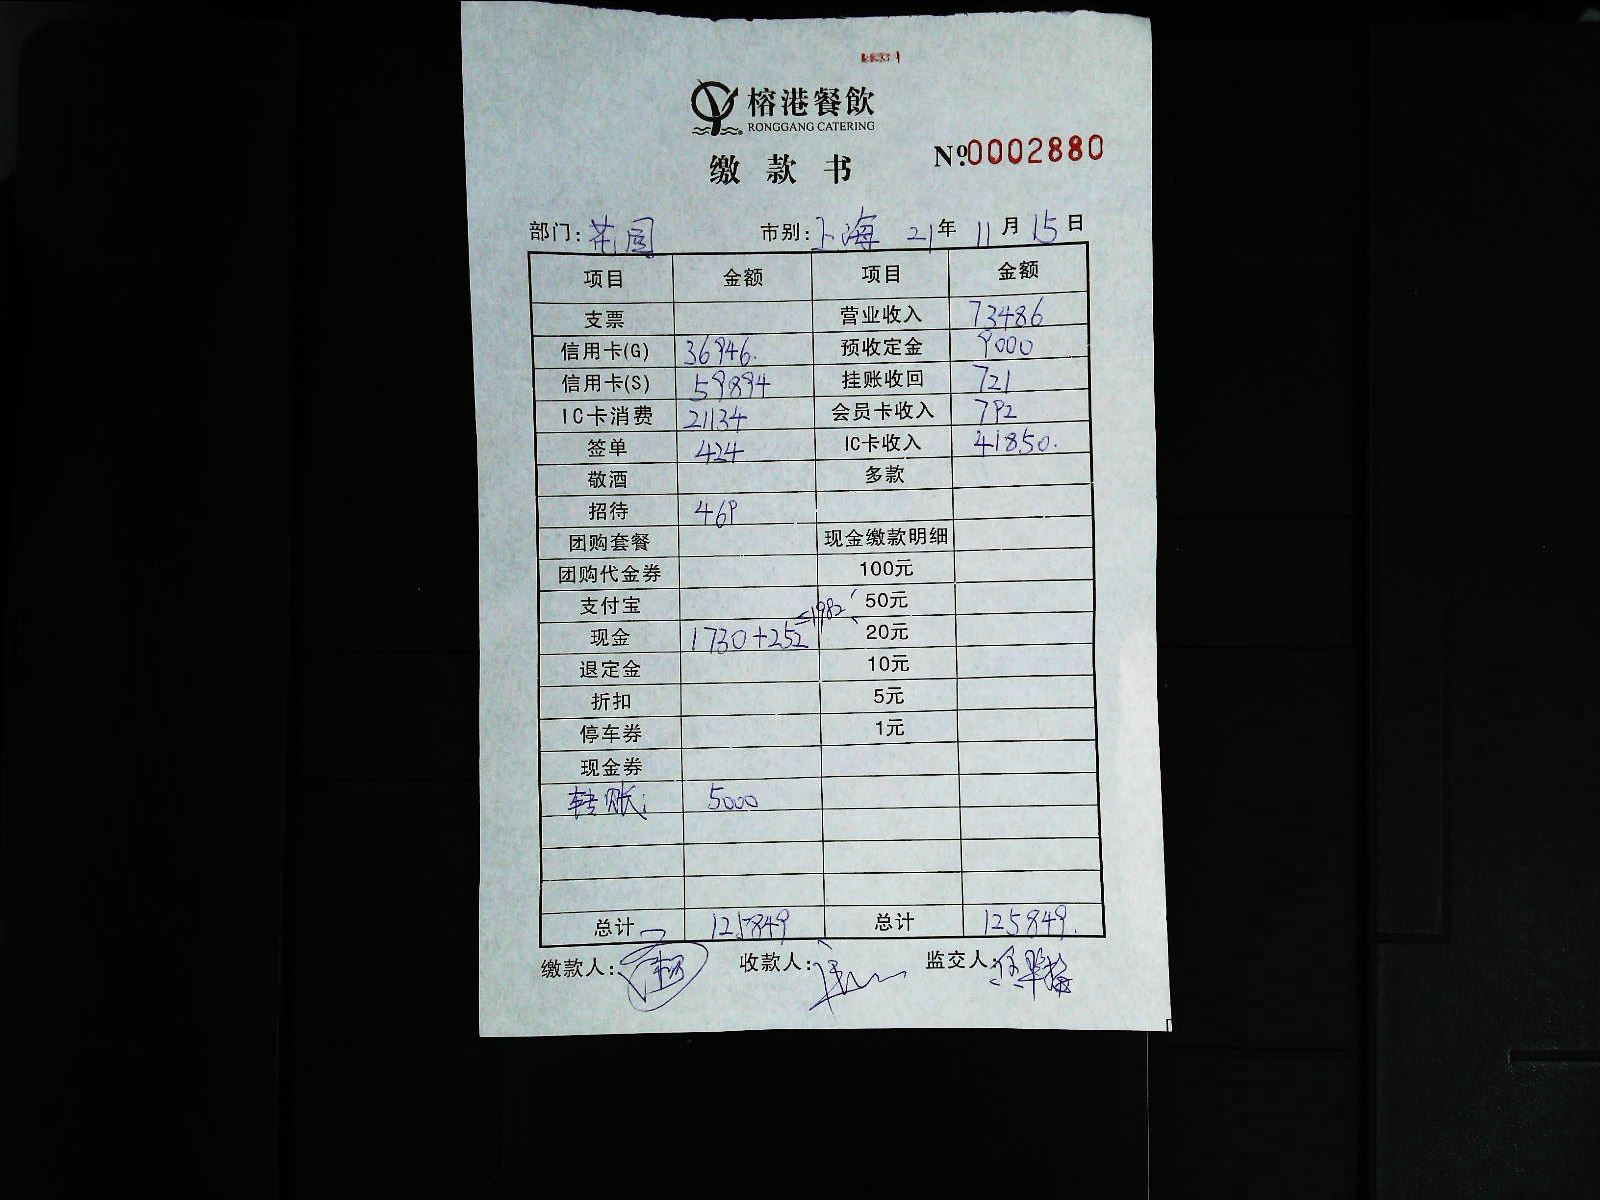 榕港餐飲
RONGGANG CATERING
缴款书 Nº.0002880
部门: 花园 市别: 上海 21年 11月 15日
项目 金额 项目 金额
支票 营业收入 73486
信用卡(G) 36946. 预收定金 9000
信用卡(S) 59894 挂账收回 721
IC卡消费 21134 会员卡收入 792
签单 424 IC卡收入 41850.
敬酒 多款
招待 469
团购套餐 现金缴款明细
团购代金券 100元
支付宝 50元
现金 1730+252=1982 20元
退定金 10元
折扣 5元
停车券 1元
现金券
转账: 5000
总计 125849 总计 125849.
缴款人: 收款人: 监交人: